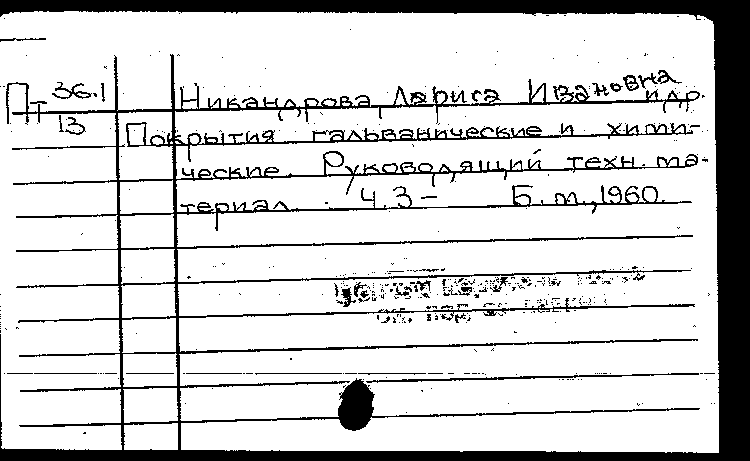 Пт 36.1
13
Никандрова, Лариса Ивановна
и др.
Покрытия гальванические и хими-
ческие. Руководящий техн. ма-
териал. Ч.3 - Б.м., 1960.
см. под